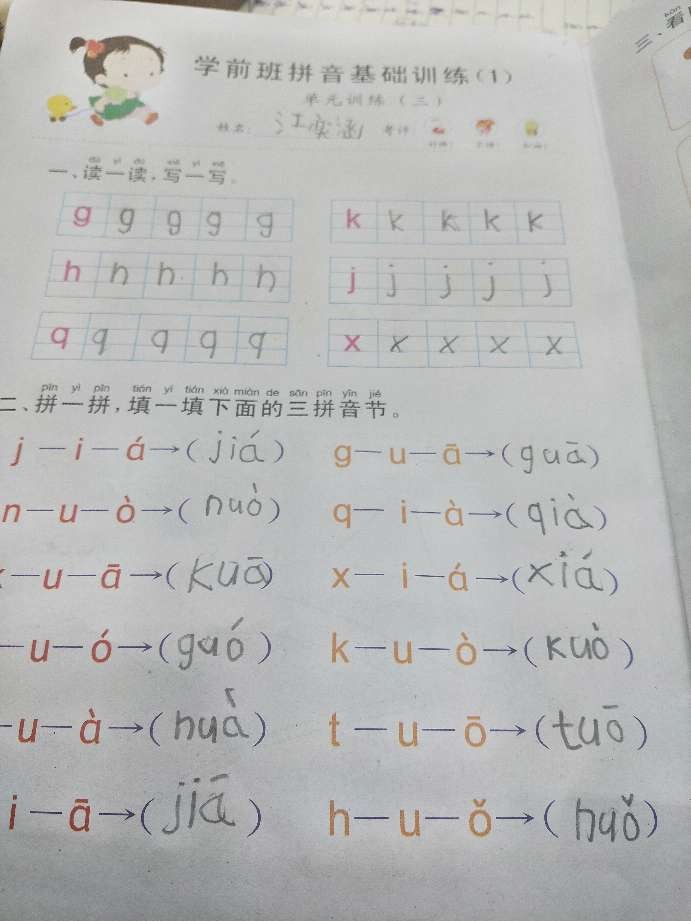 三、看
学前班拼音基础训练(1)
单元训练(三)
姓名:
一、读一读,写一写。
g g g g g k k k k k
h h h h h j j j j j
q q q q q x x x x x
pīn yì pīn tián yì tián xià miàn de sān pīn yīn jié
二、拼一拼,填一填下面的三拼音节。
j—i—á→(jiá) g—u—ā→(guā)
n—u—ò→(nuò) q—i—à→(qià)
—u—ā→(kuā) x—i—á→(xiá)
—u—ó→(guó) k—u—ò→(kuò)
—u—à→(huà) t—u—ō→(tuō)
i—ā→(jiā) h—u—ǒ→(huǒ)